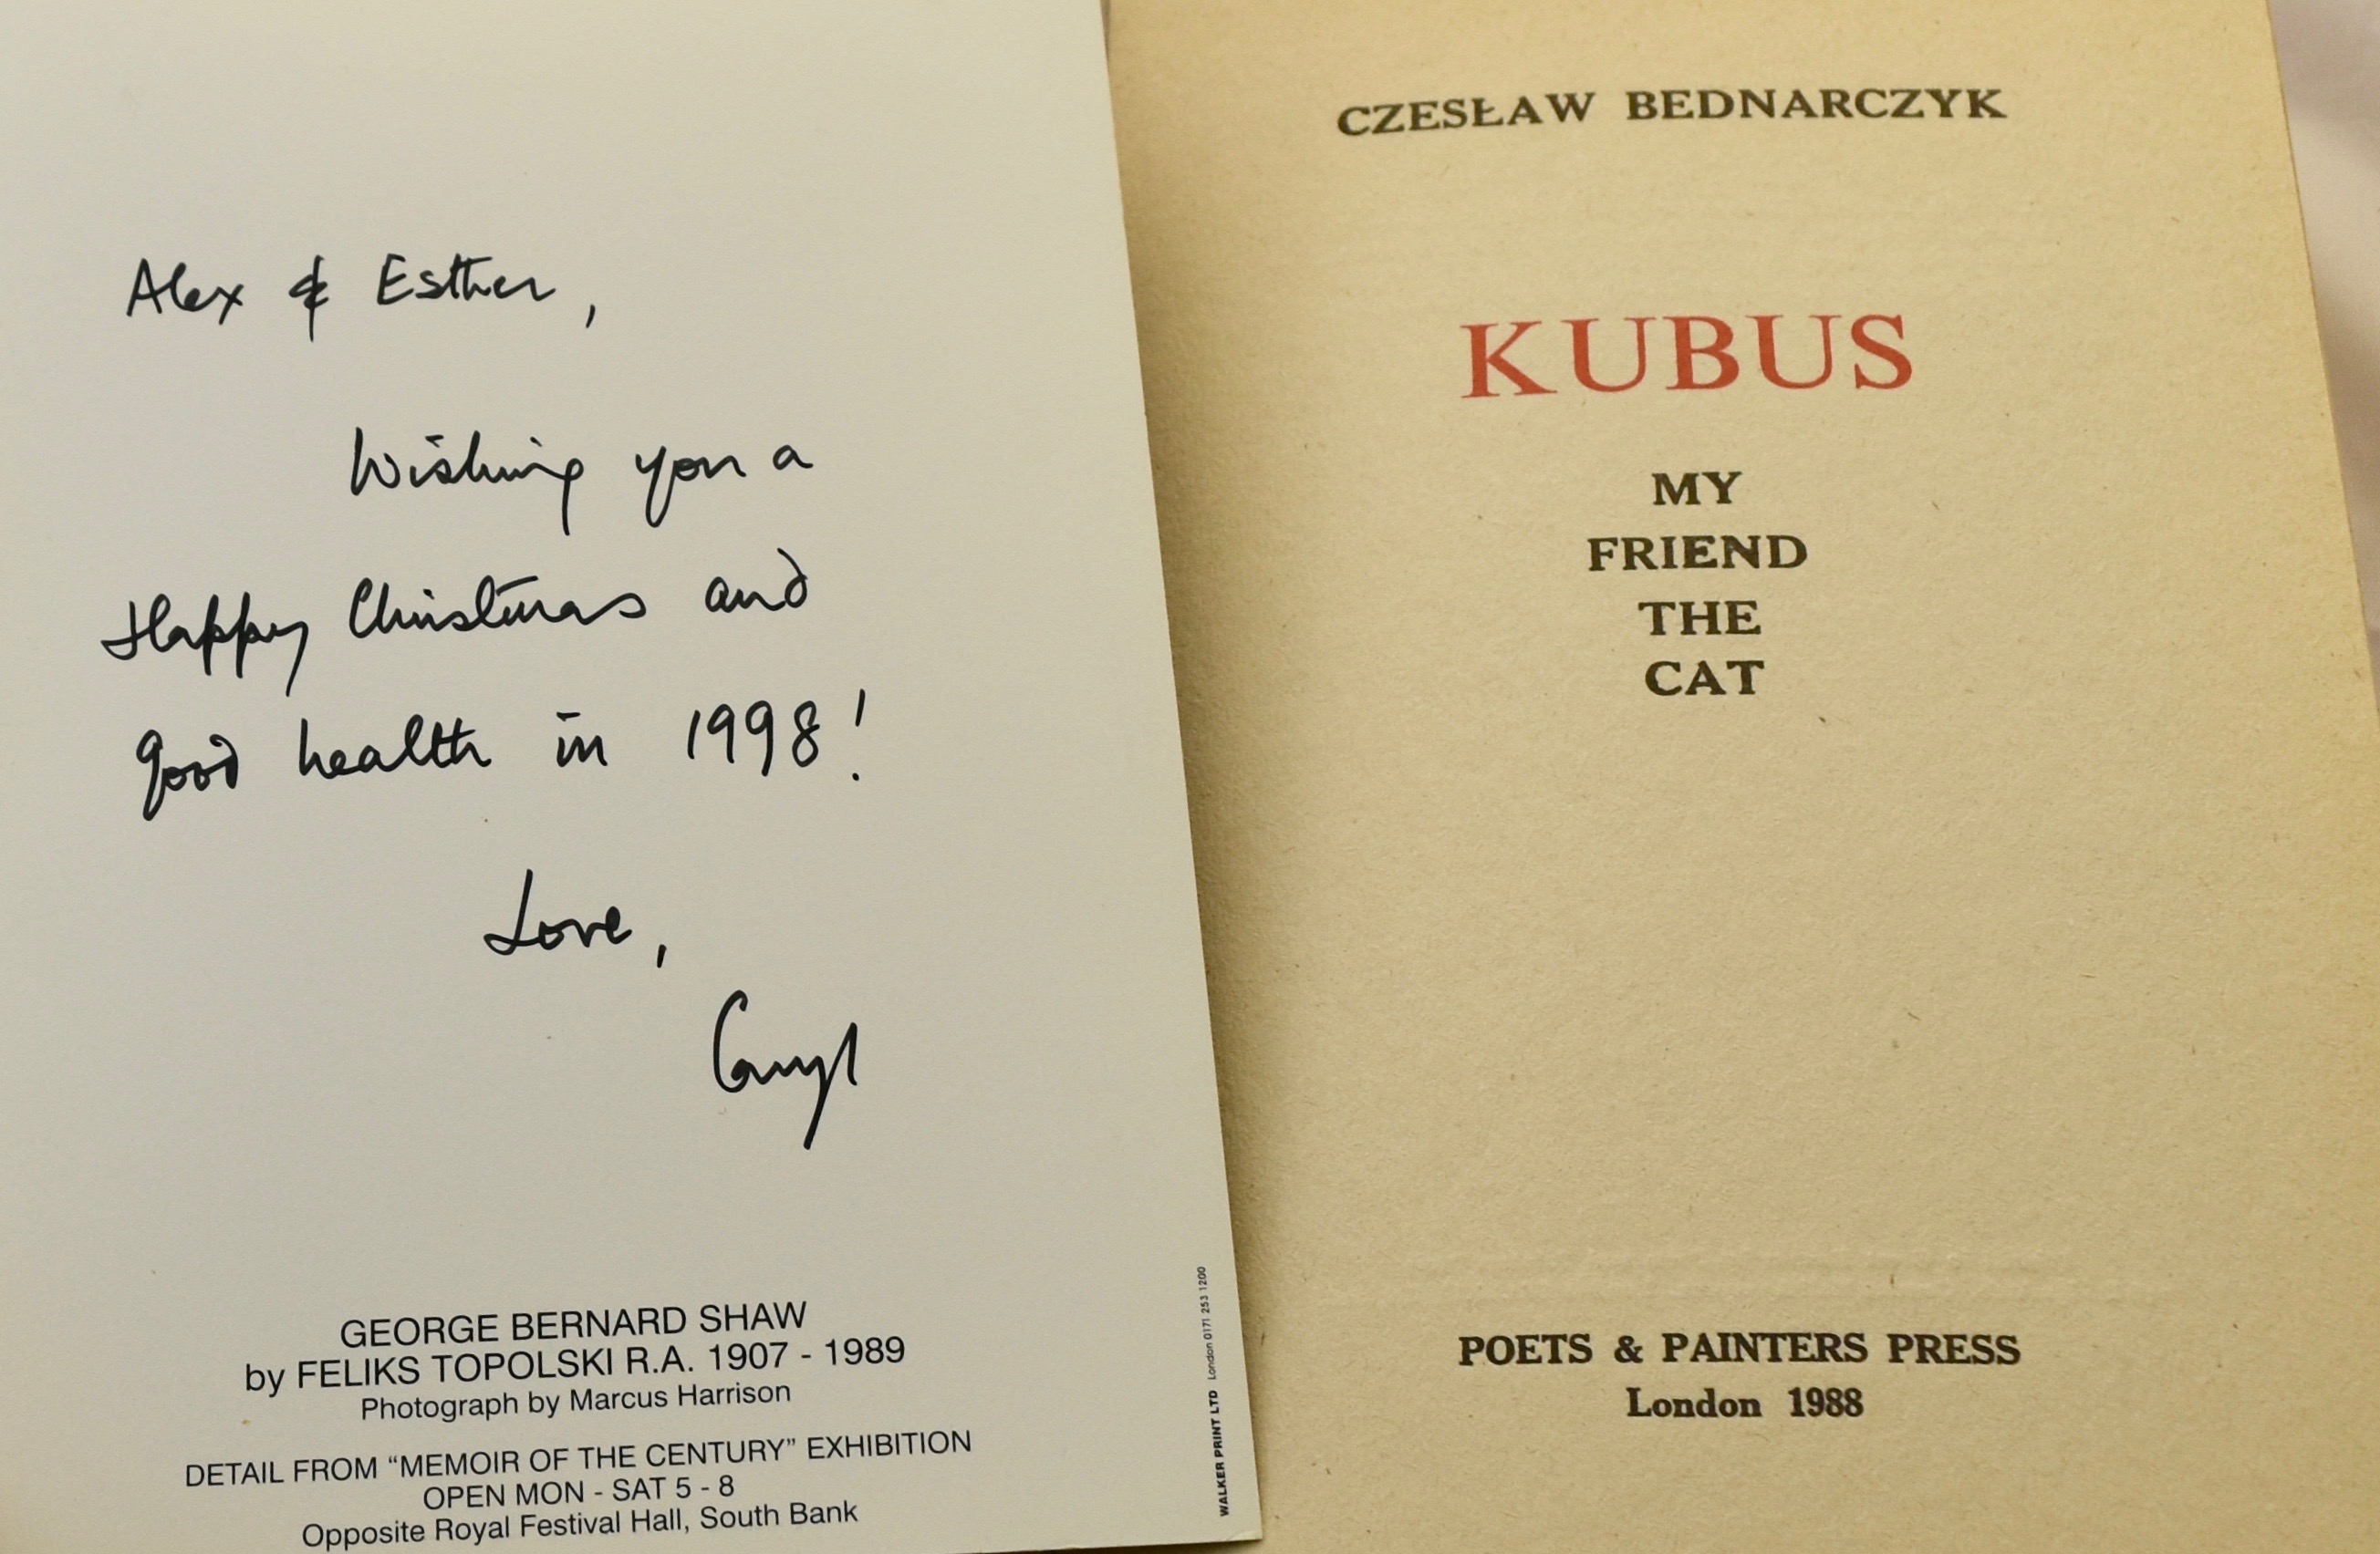 Alex & Esther,
Wishing you a
Happy Christmas and
good health in 1998!
Love,
Caryl
GEORGE BERNARD SHAW
by FELIKS TOPOLSKI R.A. 1907 - 1989
Photograph by Marcus Harrison
DETAIL FROM “MEMOIR OF THE CENTURY” EXHIBITION
OPEN MON - SAT 5 - 8
Opposite Royal Festival Hall, South Bank
WALKER PRINT LTD London 0171 253 1200
CZESŁAW BEDNARCZYK
KUBUS
MY
FRIEND
THE
CAT
POETS & PAINTERS PRESS
London 1988